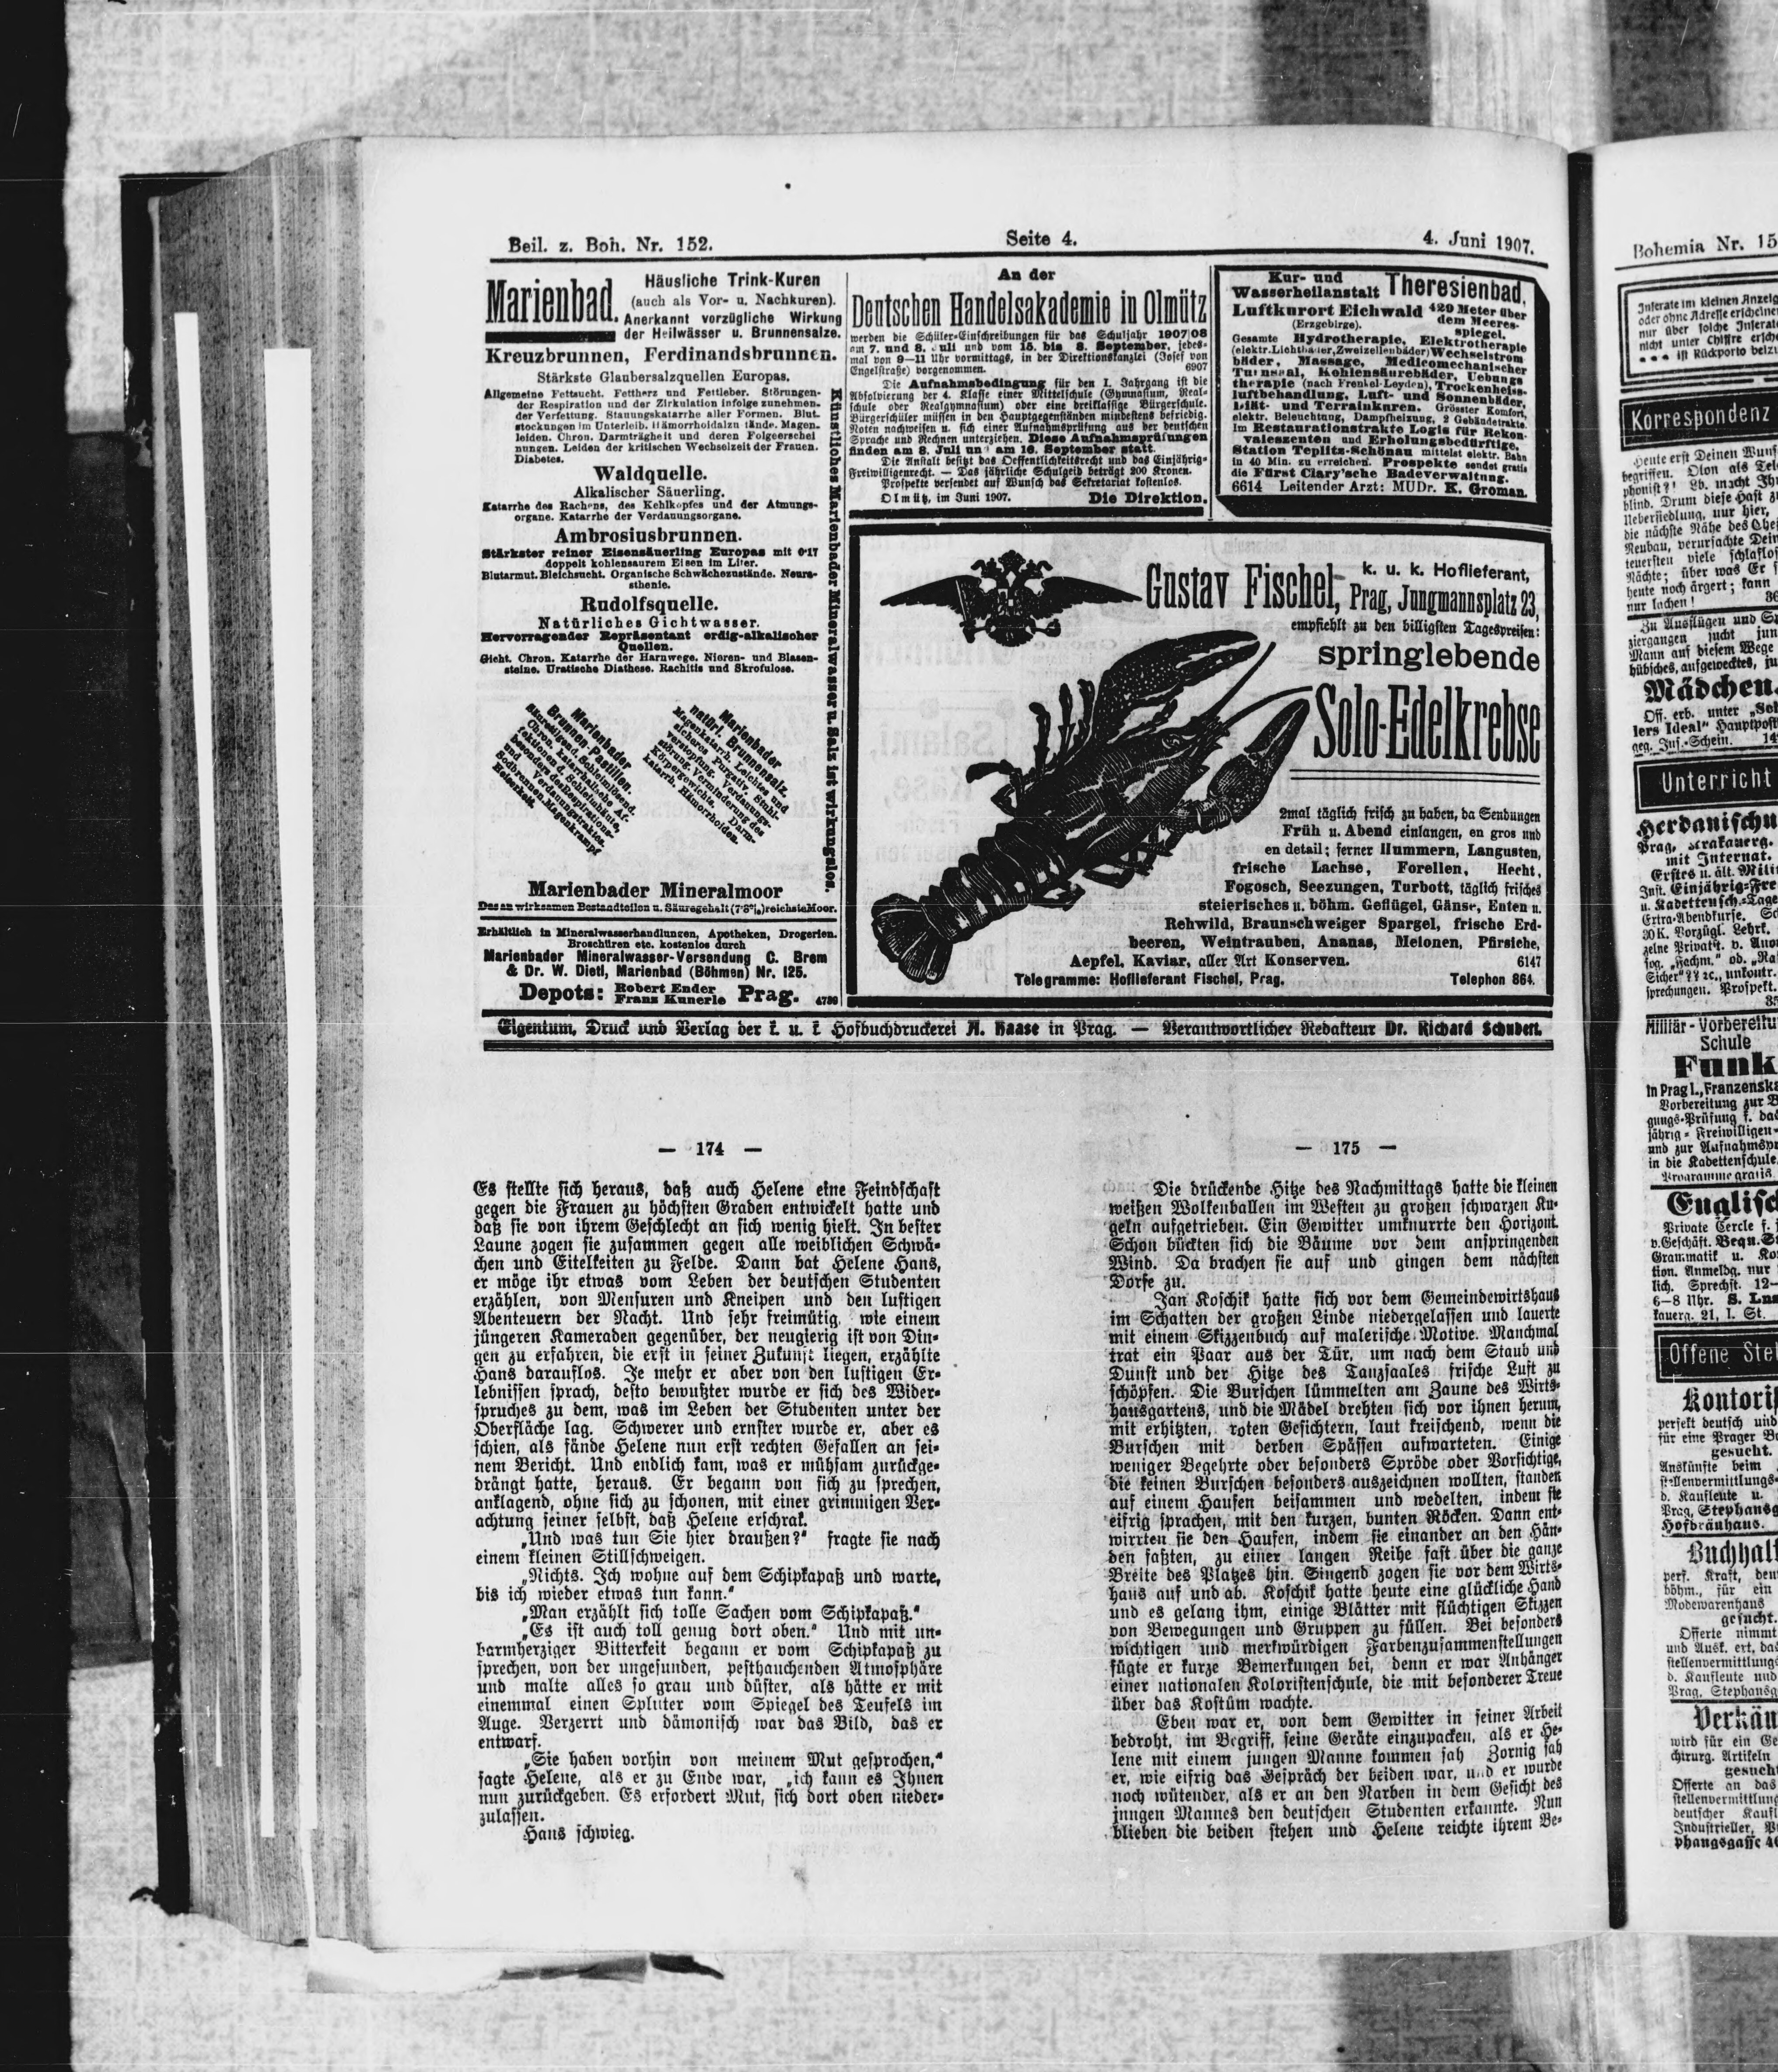 Beil. z. Boh. Nr. 152.
Seite 4.
4. Juni 1907.
Marienbad.
Häusliche Trink-Kuren
(auch als Vor- u. Nachkuren).
Anerkannt vorzügliche Wirkung
der Heilwässer u. Brunnensalze.
Kreuzbrunnen, Ferdinandsbrunnen.
Stärkste Glaubersalzquellen Europas.
Allgemeine Fettsucht. Fettherz und Fettleber. Störungen
der Respiration und der Zirkulation infolge zunehmen-
der Verfettung. Stauungskatarrhe aller Formen. Blut-
stockungen im Unterleib. Hämorrhoidalzustände. Magen-
leiden. Chron. Darmträgheit und deren Folgeerschei
nungen. Leiden der kritischen Wechselzeit der Frauen.
Diabetes.
Waldquelle.
Alkalischer Säuerling.
Katarrhe des Rachens, des Kehlkopfes und der Atmungs-
organe. Katarrhe der Verdauungsorgane.
Ambrosiusbrunnen.
Stärkster reiner Eisensäuerling Europas mit 0·17
doppelt kohlensaurem Eisen im Liter.
Blutarmut. Bleichsucht. Organische Schwächezustände. Neura-
sthenie.
Rudolfsquelle.
Natürliches Gichtwasser.
Hervorragender Repräsentant erdig-alkalischer
Quellen.
Gicht. Chron. Katarrhe der Harnwege. Nieren- und Blasen-
steine. Uratische Diathese. Rachitis und Skrofulose.
Marienbader
Brunnen-Pastillen.
Säuretilgend. Schleimlösend.
Chron. katarrhalische Af-
fektionen d. Schleimhäute,
besonders der Respirations-
und Verdauungstraktes.
Sodbrennen. Magenkrampf
Heiserkeit.
Marienbader
natürl. Brunnensalz.
Magenkatarrh. Leichtes und
sicheres Purgativ. Stuhl-
verstopfung. Verdauungs-
störung. Verminderung des
Körpergewichts. Darm-
katarrh. Hämorrhoiden.
Künstliches Marienbader Mineralwasser u. Salz ist wirkungslos.
Marienbader Mineralmoor
Das an wirksamen Bestandteilen u. Säuregehalt (7·8%) reichste Moor.
Erhältlich in Mineralwasserhandlungen, Apotheken, Drogerien.
Broschüren etc. kostenlos durch
Marienbader Mineralwasser-Versendung C. Brem
& Dr. W. Dietl, Marienbad (Böhmen) Nr. 125.
Depots: Robert Ender
Franz Kunerle Prag. 4736
An der
Deutschen Handelsakademie in Olmütz
werden die Schüler-Einschreibungen für das Schuljahr 1907/08
am 7. und 8. Juli und vom 15. bis 8. September, jedes-
mal von 9—11 Uhr vormittags, in der Direktionskanzlei (Josef von
Engelstraße) vorgenommen. 6907
Die Aufnahmsbedingung für den I. Jahrgang ist die
Absolvierung der 4. Klasse einer Mittelschule (Gymnasium, Real-
schule oder Realgymnasium) oder eine dreiklassige Bürgerschule.
Bürgerschüler müssen in den Hauptgegenständen mindestens befriedig.
Noten nachweisen u. sich einer Aufnahmsprüfung aus der deutschen
Sprache und Rechnen unterziehen. Diese Aufnahmsprüfungen
finden am 8. Juli und am 16. September statt.
Die Anstalt besitzt das Oeffentlichkeitsrecht und das Einjährig-
Freiwilligenrecht. — Das jährliche Schulgeld beträgt 200 Kronen.
Prospekte versendet auf Wunsch das Sekretariat kostenlos.
Olmütz, im Juni 1907. Die Direktion.
Kur- und
Wasserheilanstalt Theresienbad,
Luftkurort Eichwald 420 Meter über
(Erzgebirge). dem Meeres-
spiegel.
Gesamte Hydrotherapie, Elektrotherapie
(elektr. Lichtbäder, Zweizellenbäder) Wechselstrom
bäder, Massage, Medicomechanischer
Turnsaal, Kohlensäurebäder, Uebungs
therapie (nach Frenkel-Leyden), Trockenheiss-
luftbehandlung, Luft- und Sonnenbäder,
Diät- und Terrainkuren. Grösster Komfort,
elektr. Beleuchtung, Dampfheizung, 2 Gebäudetrakte.
Im Restaurationstrakte Logis für Rekon-
valeszenten und Erholungsbedürftige.
Station Teplitz-Schönau mittelst elektr. Bahn
in 40 Min. zu erreichen. Prospekte sendet gratis
die Fürst Clary'sche Badeverwaltung.
6614 Leitender Arzt: MUDr. K. Groman.
Gustav Fischel, k. u. k. Hoflieferant,
Prag, Jungmannsplatz 23,
empfiehlt zu den billigsten Tagespreisen:
springlebende
Solo-Edelkrebse
2mal täglich frisch zu haben, da Sendungen
Früh u. Abend einlangen, en gros und
en detail; ferner Hummern, Langusten,
frische Lachse, Forellen, Hecht,
Fogosch, Seezungen, Turbott, täglich frisches
steierisches u. böhm. Geflügel, Gänse, Enten u.
Rehwild, Braunschweiger Spargel, frische Erd-
beeren, Weintrauben, Ananas, Melonen, Pfirsiche,
Aepfel, Kaviar, aller Art Konserven. 6147
Telegramme: Hoflieferant Fischel, Prag. Telephon 864.
Eigentum, Druck und Verlag der k. u. k Hofbuchdruckerei A. Haase in Prag. — Verantwortlicher Redakteur Dr. Richard Schubert.
— 174 —
Es stellte sich heraus, daß auch Helene eine Feindschaft
gegen die Frauen zu höchsten Graden entwickelt hatte und
daß sie von ihrem Geschlecht an sich wenig hielt. In bester
Laune zogen sie zusammen gegen alle weiblichen Schwä-
chen und Eitelkeiten zu Felde. Dann bat Helene Hans,
er möge ihr etwas vom Leben der deutschen Studenten
erzählen, von Mensuren und Kneipen und den lustigen
Abenteuern der Nacht. Und sehr freimütig, wie einem
jüngeren Kameraden gegenüber, der neugierig ist von Din-
gen zu erfahren, die erst in seiner Zukunft liegen, erzählte
Hans darauflos. Je mehr er aber von den lustigen Er-
lebnissen sprach, desto bewußter wurde er sich des Wider-
spruches zu dem, was im Leben der Studenten unter der
Oberfläche lag. Schwerer und ernster wurde er, aber es
schien, als fände Helene nun erst rechten Gefallen an sei-
nem Bericht. Und endlich kam, was er mühsam zurückge-
drängt hatte, heraus. Er begann von sich zu sprechen,
anklagend, ohne sich zu schonen, mit einer grimmigen Ver-
achtung seiner selbst, daß Helene erschrak.
„Und was tun Sie hier draußen?" fragte sie nach
einem kleinen Stillschweigen.
„Nichts. Ich wohne auf dem Schipkapaß und warte,
bis ich wieder etwas tun kann."
„Man erzählt sich tolle Sachen vom Schipkapaß."
„Es ist auch toll genug dort oben." Und mit un-
barmherziger Bitterkeit begann er vom Schipkapaß zu
sprechen, von der ungesunden, pesthauchenden Atmosphäre
und malte alles so grau und düster, als hätte er mit
einemmal einen Splitter vom Spiegel des Teufels im
Auge. Verzerrt und dämonisch war das Bild, das er
entwarf.
„Sie haben vorhin von meinem Mut gesprochen,"
sagte Helene, als er zu Ende war, „ich kann es Ihnen
nun zurückgeben. Es erfordert Mut, sich dort oben nieder-
zulassen.
Hans schwieg.
— 175 —
Die drückende Hitze des Nachmittags hatte die kleinen
weißen Wolkenballen im Westen zu großen schwarzen Ku-
geln aufgetrieben. Ein Gewitter umknurrte den Horizont.
Schon bückten sich die Bäume vor dem anspringenden
Wind. Da brachen sie auf und gingen dem nächsten
Dorfe zu.
Jan Koschik hatte sich vor dem Gemeindewirtshaus
im Schatten der großen Linde niedergelassen und lauerte
mit einem Skizzenbuch auf malerische Motive. Manchmal
trat ein Paar aus der Tür, um nach dem Staub und
Dunst und der Hitze des Tanzsaales frische Luft zu
schöpfen. Die Burschen lümmelten am Zaune des Wirts-
hausgartens, und die Mädel drehten sich vor ihnen herum,
mit erhitzten, roten Gesichtern, laut kreischend, wenn die
Burschen mit derben Spässen aufwarteten. Einige
weniger Begehrte oder besonders Spröde oder Vorsichtige,
die keinen Burschen besonders auszeichnen wollten, standen
auf einem Haufen beisammen und wedelten, indem sie
eifrig sprachen, mit den kurzen, bunten Röcken. Dann ent-
wirrten sie den Haufen, indem sie einander an den Hän-
den faßten, zu einer langen Reihe fast über die ganze
Breite des Platzes hin. Singend zogen sie vor dem Wirts-
haus auf und ab. Koschik hatte heute eine glückliche Hand
und es gelang ihm, einige Blätter mit flüchtigen Skizzen
von Bewegungen und Gruppen zu füllen. Bei besonders
wichtigen und merkwürdigen Farbenzusammenstellungen
fügte er kurze Bemerkungen bei, denn er war Anhänger
einer nationalen Koloristenschule, die mit besonderer Treue
über das Kostüm wachte.
Eben war er, von dem Gewitter in seiner Arbeit
bedroht, im Begriff, seine Geräte einzupacken, als er He-
lene mit einem jungen Manne kommen sah Zornig sah
er, wie eifrig das Gespräch der beiden war, und er wurde
noch wütender, als er an den Narben in dem Gesicht des
jungen Mannes den deutschen Studenten erkannte. Nun
blieben die beiden stehen und Helene reichte ihrem Be-
Bohemia Nr. 15
Inserate im kleinen Anzeig
oder ohne Adresse erscheinen
nur über solche Inserate
nicht unter Chiffre ersche
ist Rückporto beizu
Korrespondenz
Heute erst Deinen Wunsch
begriffen.
phonist?! Lb. macht Ihn
blind. Drum diese Hast zu
Uebersiedlung, nur hier,
die nächste Nähe des
Neubau, verursachte Dein
teuersten viele schlaflose
Nächte; über was Er s
heute noch ärgert; kann
nur lachen! 36
Zu Ausflügen und Sp
ziergängen sucht jun
Mann auf diesem Wege
hübsches, aufgewecktes, ju
Mädchen.
Off. erb. unter „Sel
lers Ideal" Hauptpost
geg. Ins.-Schein. 14
Unterricht
Prag,
mit Internat.
Erstes u. ält. Milit
Inst. Einjährig-Fre
u. Kadettensch.-Tage
Extra-Abendkurse.
30 K. Vorzügl. Lehrt.
sprechungen. Prospekt.
Militär-Vorbereitu
Schule
Funk
in Prag I., Franzenska
Vorbereitung zur B
gungs-Prüfung f. da
jährig-Freiwilligen-
und zur Aufnahmspr
in die Kadettenschule.
Programme gratis
Englisc
Private Cercle f.
v. Geschäft. Bequ. S
Grammatik u. Ko
tion. Anmeldg. nur
lich. Sprechst. 12—
6—8 Uhr.
21, I. St.
Offene Stel
Kontoris
perfekt deutsch und
für eine Prager
gesucht.
Auskünfte beim
stellenvermittlungs-
d. Kaufleute u.
Prag, Stephansg
Hofbräuhaus.
Buchhalt
perf. Kraft, deu
böhm., für ein
Modewarenhaus
gesucht.
Offerte nimmt
und Ausk. ert. das
stellenvermittlungs
d. Kaufleute und
Prag, Stephansg
Verkäu
wird für ein Ge
chirurg. Artikeln
gesucht
Offerte an das
stellenvermittlung
deutscher Kaufl
Industrieller, P
phansgasse 4